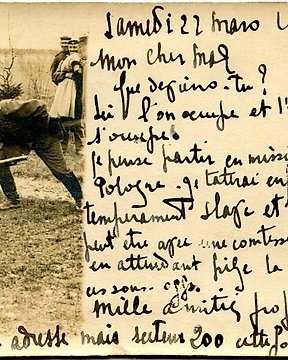 Samedi 22 mars
Mon cher
Que deviens-tu ?
Ici l'on occupe et l'
s'occupe
Je pense partir en missi
Pologne. Je tâterai en
tempérament slave et
peut être avec une comtesse
en attendant pige la
Mille amitiés
adresse mais secteur 200 cette